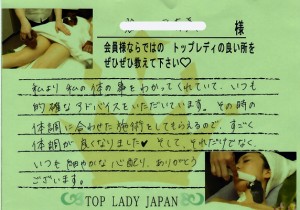 様
会員様ならではの トップレディの良い所を
ぜひぜひ教えて下さい♡
私より 私の体の事をわかってくれていて、いつも
的確なアドバイスをいただいています。その時の
体調に合わせた施術をしてもらえるので、すごく
体調が良くなりました♥ そして、それだけでなく、
いつも細やかな心配り、ありがとう
ございます。
TOP LADY JAPAN